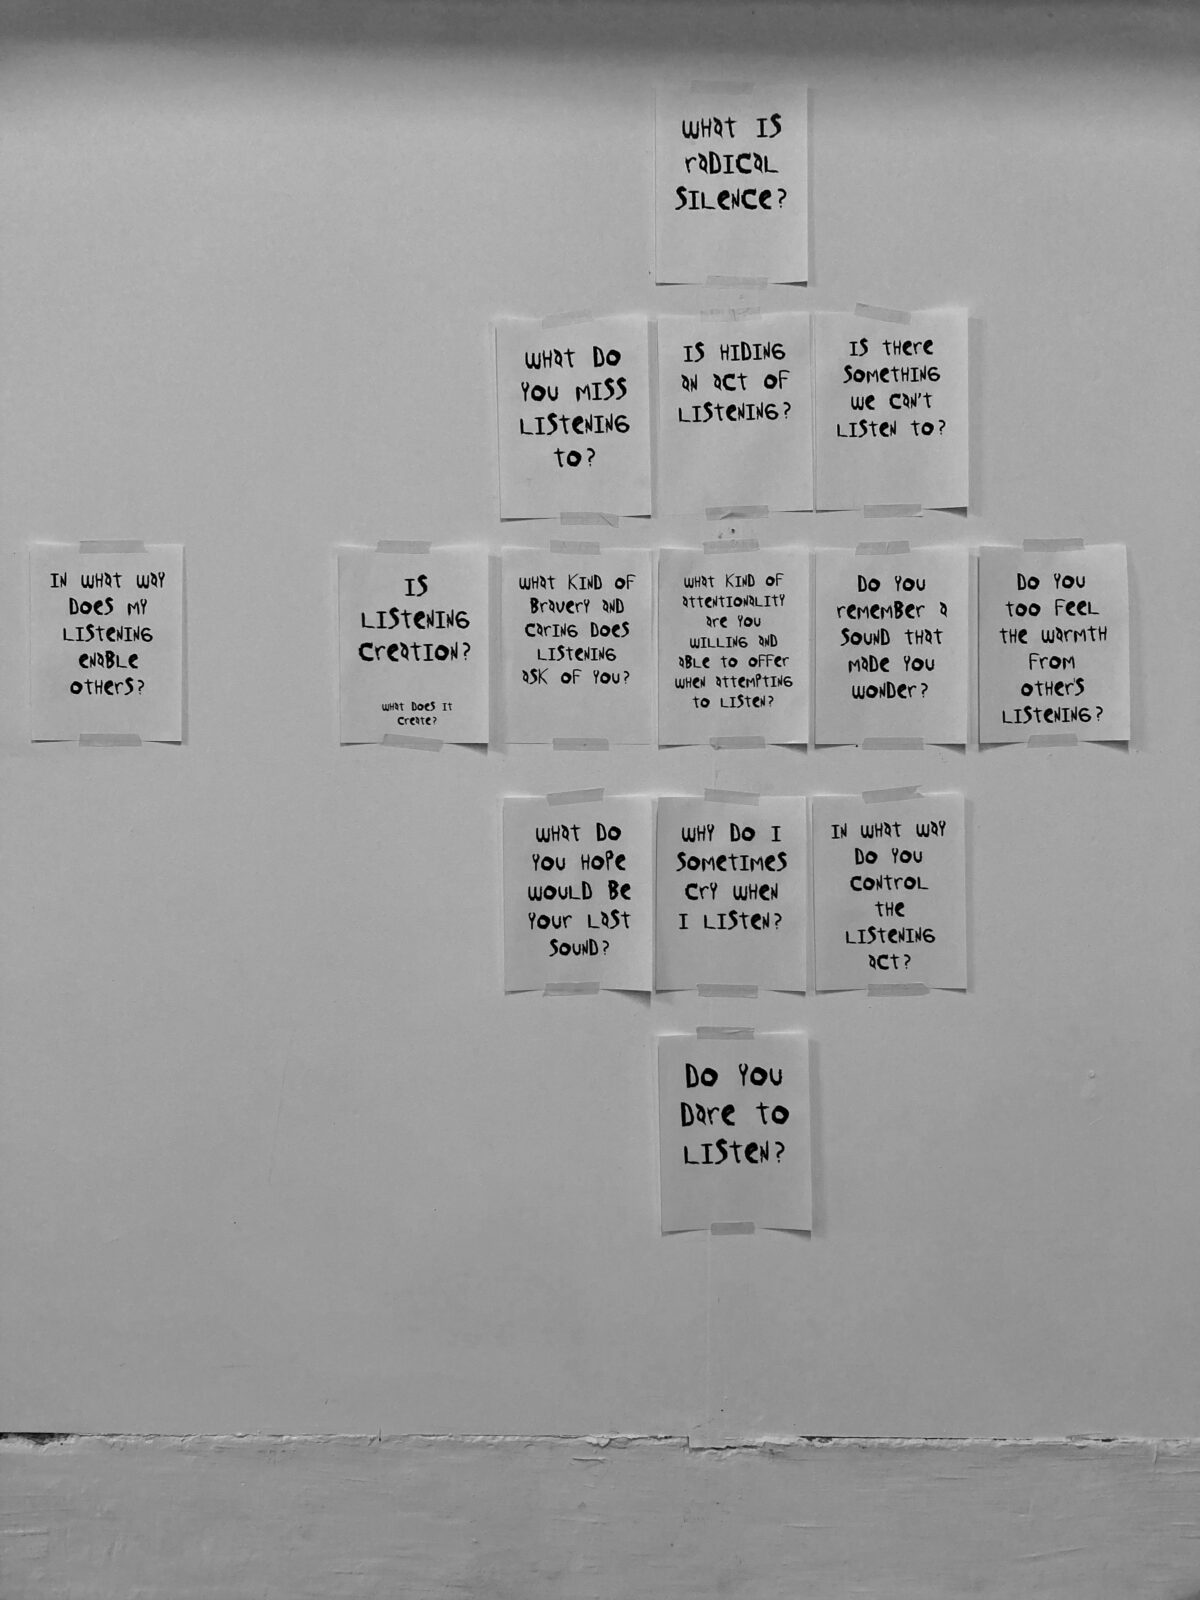 WHAT IS
RADICAL
SILENCE?
WHAT DO
YOU MISS
LISTENING
TO?
IS HIDING
AN ACT OF
LISTENING?
IS THERE
SOMETHING
WE CAN'T
LISTEN TO?
IN WHAT WAY
DOES MY
LISTENING
ENABLE
OTHERS?
IS
LISTENING
CREATION?
WHAT DOES IT
CREATE?
WHAT KIND OF
BRAVERY AND
CARING DOES
LISTENING
ASK OF YOU?
WHAT KIND OF
ATTENTIONALITY
ARE YOU
WILLING AND
ABLE TO OFFER
WHEN ATTEMPTING
TO LISTEN?
DO YOU
REMEMBER A
SOUND THAT
MADE YOU
WONDER?
DO YOU
TOO FEEL
THE WARMTH
FROM
OTHER'S
LISTENING?
WHAT DO
YOU HOPE
WOULD BE
YOUR LAST
SOUND?
WHY DO I
SOMETIMES
CRY WHEN
I LISTEN?
IN WHAT WAY
DO YOU
CONTROL
THE
LISTENING
ACT?
DO YOU
DARE TO
LISTEN?